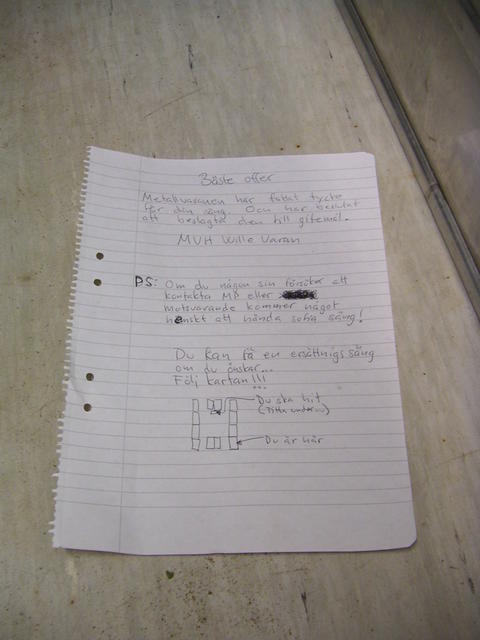 Bäste offer
Metallvaranen har fattat tycke
för din säng. Och har beslutat
att beslagta den till giftemål.
MVH Wille Varan
PS: Om du någon sin försöker att
kontakta MP eller
motsvarande kommer något
hemskt att hända sofia säng!
Du kan få en ersättnigs säng
om du önskar...
Följ kartan!!!
Du ska hit
(Titta under)
Du är här